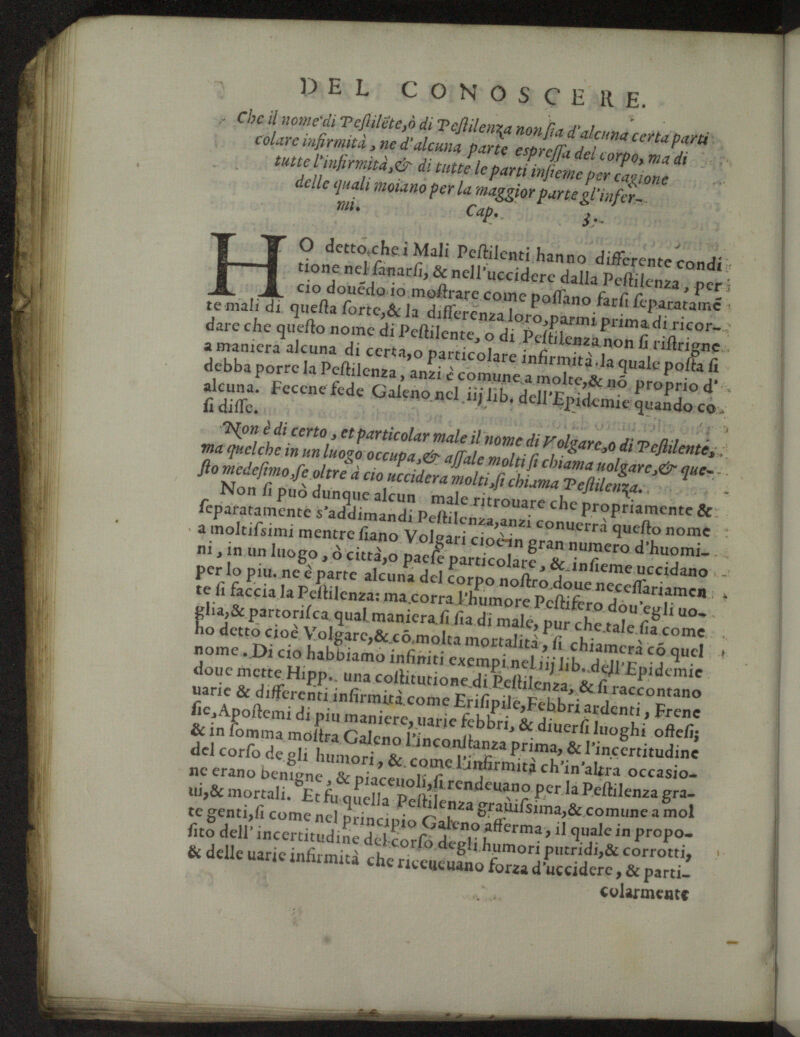 DEL CONOSCERE.
Che il nome di Pestilēte, ò di Pestilenza non sia d'alcuna certa parti
colare infirmità, ne d'alcuna parte espressa del corpo, ma di
tutte l'infirmità, & di tutte le parti insieme per cagione
delle quali moiano per la maggior parte gl'infer-
mi. Cap. 3.
HO detto, che i Mali Pestilenti hanno differente condi
tione nel sanarsi, & nell'uccidere dalla Pestilenza, per
cio douēdo io mostrare come possano farsi separatamē
te mali di questa sorte, & la differenza loro, parmi prima di ricor-
dare che questo nome di Pestilente, o di Pestilenza non si ristrigne
a maniera alcuna di certa, o particolare infirmità. la quale posta si
debba porre la Pestilenza, anzi è comune a molte, & nō proprio d'
alcuna. Fecene fede Galeno nel iij lib. dell'Epidemie quando co
si disse.
Non è di certo, et particolar male il nome di Volgare, o di Pestilente,
ma quelche in un luogo occupa, & assale molti si chiama uolgare, & que-
sto medesimo, se oltre à cio uccidera molti, si chiama Pestilenza.
Non si può dunque alcun male ritrouare che propriamente &
separatamente s'addimandi Pestilenza, anzi conuerrà questo nome
a moltissimi mentre siano Volgari cioè in gran numero d'huomi-
ni, in un luogo, ò città, o paese particolare, & insieme uccidano
per lo piu. ne è parte alcuna del corpo nostro doue necessariamen
te si faccia la Pestilenza: ma corra l'humore Pestifero dou'egli uo-
glia, & partorisca qual maniera si sia di male, pur che tale sia come
ho detto cioè Volgare, & cō molta mortalità, si chiamerà cō quel
nome. Di cio habbiamo infiniti exempi nel iij lib. dell'Epidemie
doue mette Hipp. una costitutione di Pestilenza, & si raccontano
uarie & differenti infirmità come Erisipile, Febbri ardenti, Frene
sie, Apostemi di piu maniere, uarie febbri, & diuersi luoghi offesi;
& in somma mostra Galeno l'inconstanza prima, & l'incertitudine
del corso de gli humori, & come l'infirmità ch'in'altra occasio-
ne erano benigne, & piaceuoli, si rendeuano per la Pestilenza gra-
ui, & mortali. Et fu quella Pestilenza grauissima, & comune a mol
te genti, si come nel principio Galeno afferma, il quale in propo-
sito dell' incertitudine del corso degli humori putridi, & corrotti,
& delle uarie infirmità che riceueuano forza d'uccidere, & parti-
colarmente